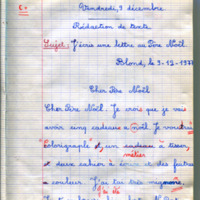 Vendredi, 9 décembre
Rédaction de texte
Sujet: J'écris une lettre au Père Noël.
Blond, le 9-12-197
Cher Père Noël
Cher Père Noël. Je crois que je vais
avoir cinq cadeaux à noël. Je voudrai
"colorigraphe" et, un cadeau à tisser,
métier
et deux cahier à écrire et des feutres
à couleur. J'ai tré très mignonne.
J'ai été